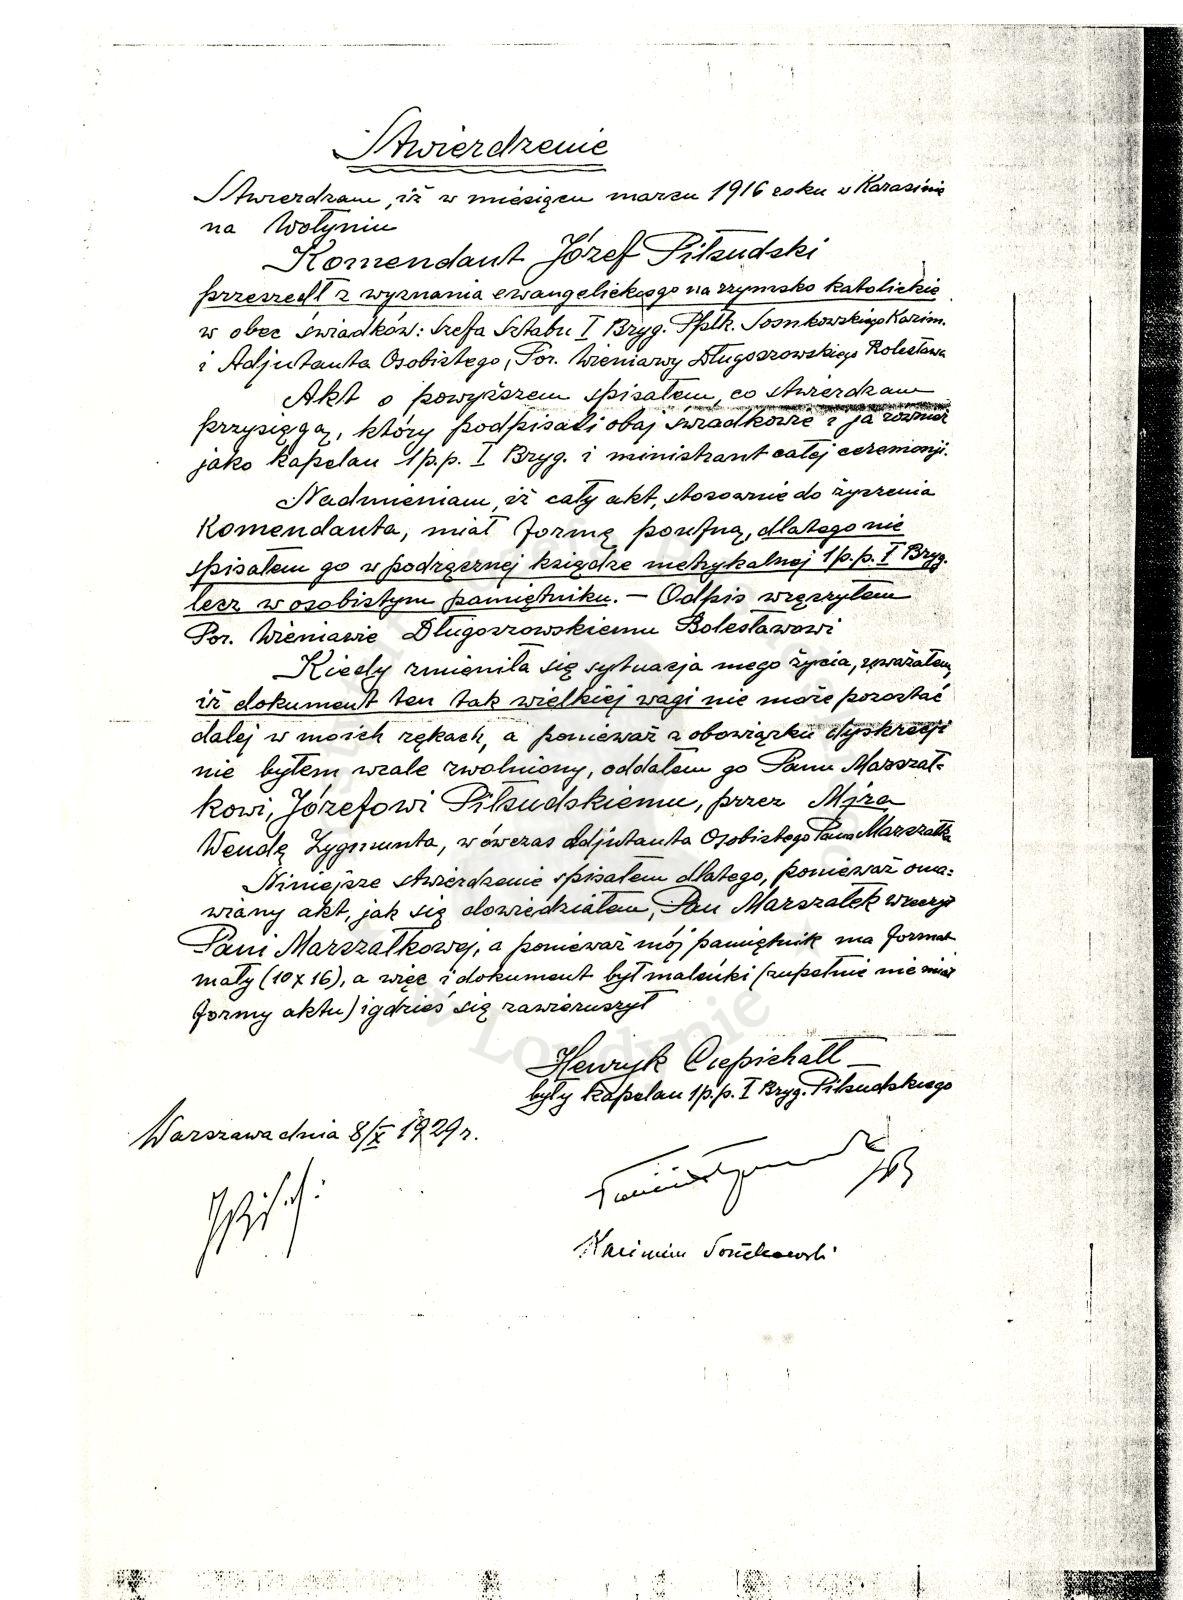 Stwierdzenie
Stwierdzam, iż w miesiącu marcu 1916 roku w Karasinie
na Wołyniu
Komendant Józef Piłsudski
przeszedł z wyznania ewangelickiego na rzymsko katolickie
w obec świadków: Szefa Sztabu I Bryg. Ppłk. Sosnkowskiego Kazim.
i Adjutanta Osobistego, Por. Wieniawy Długoszowskiego Bolesława
Akt o powyższem spisałem, co stwierdzam
przysięgą, który podpisali obaj świadkowie i ja również
jako kapelan 1 p.p. I Bryg. i ministrant całej ceremonji.
Nadmieniam, iż cały akt, stosownie do życzenia
Komendanta, miał formę poufną, dlatego nie
spisałem go w podręcznej księdze metrykalnej 1 p.p. I Bryg.
lecz w osobistym pamiętniku. — Odpis wręczyłem
Por. Wieniawie Długoszowskiemu Bolesławowi
Kiedy zmieniła się sytuacja mego życia, zważałem,
iż dokument ten tak wielkiej wagi nie może pozostać
dalej w moich rękach, a ponieważ z obowiązku dyskrecji
nie byłem wcale zwolniony, oddałem go Panu Marszał-
kowi, Józefowi Piłsudskiemu, przez Mjra
Wendę Zygmunta, wówczas adjutanta Osobistego Pana Marszałka
Niniejsze stwierdzenie spisałem dlatego, ponieważ oma-
wiany akt, jak się dowiedziałem, Pan Marszałek wręczył
Pani Marszałkowej, a ponieważ mój pamiętnik ma format
mały (10x16), a więc i dokument był maleńki (zupełnie nie miał
formy aktu) i gdzieś się zawieruszył
Henryk Ciepichałł
były kapelan 1 p.p. I Bryg. Piłsudskiego
Warszawa dnia 8/X 1929 r.
Kazimierz Sosnkowski
Londynie